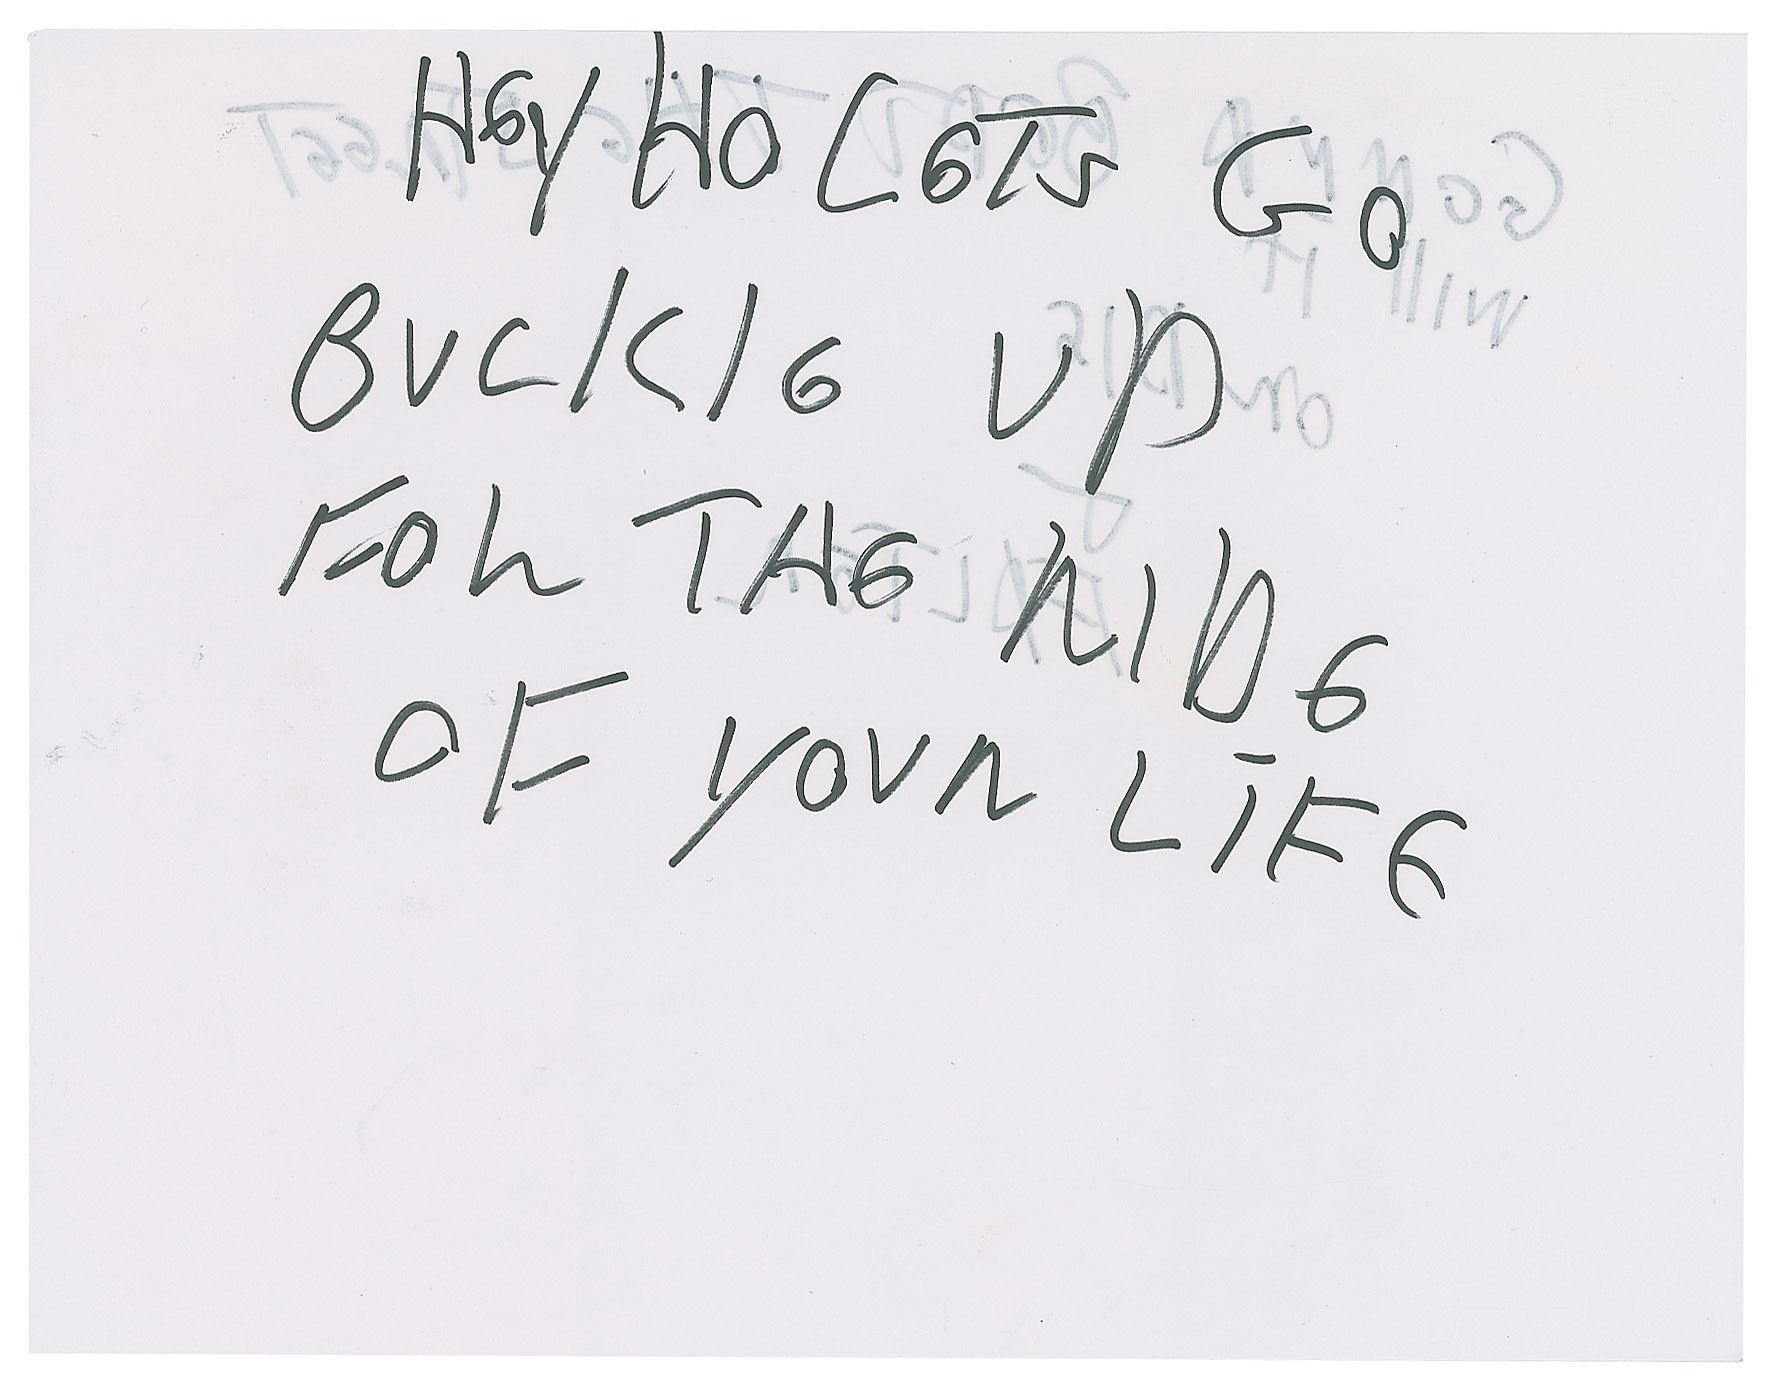 HEY HO LETS GO
BUCKLE UP
FOR THE RIDE
OF YOUR LIFE